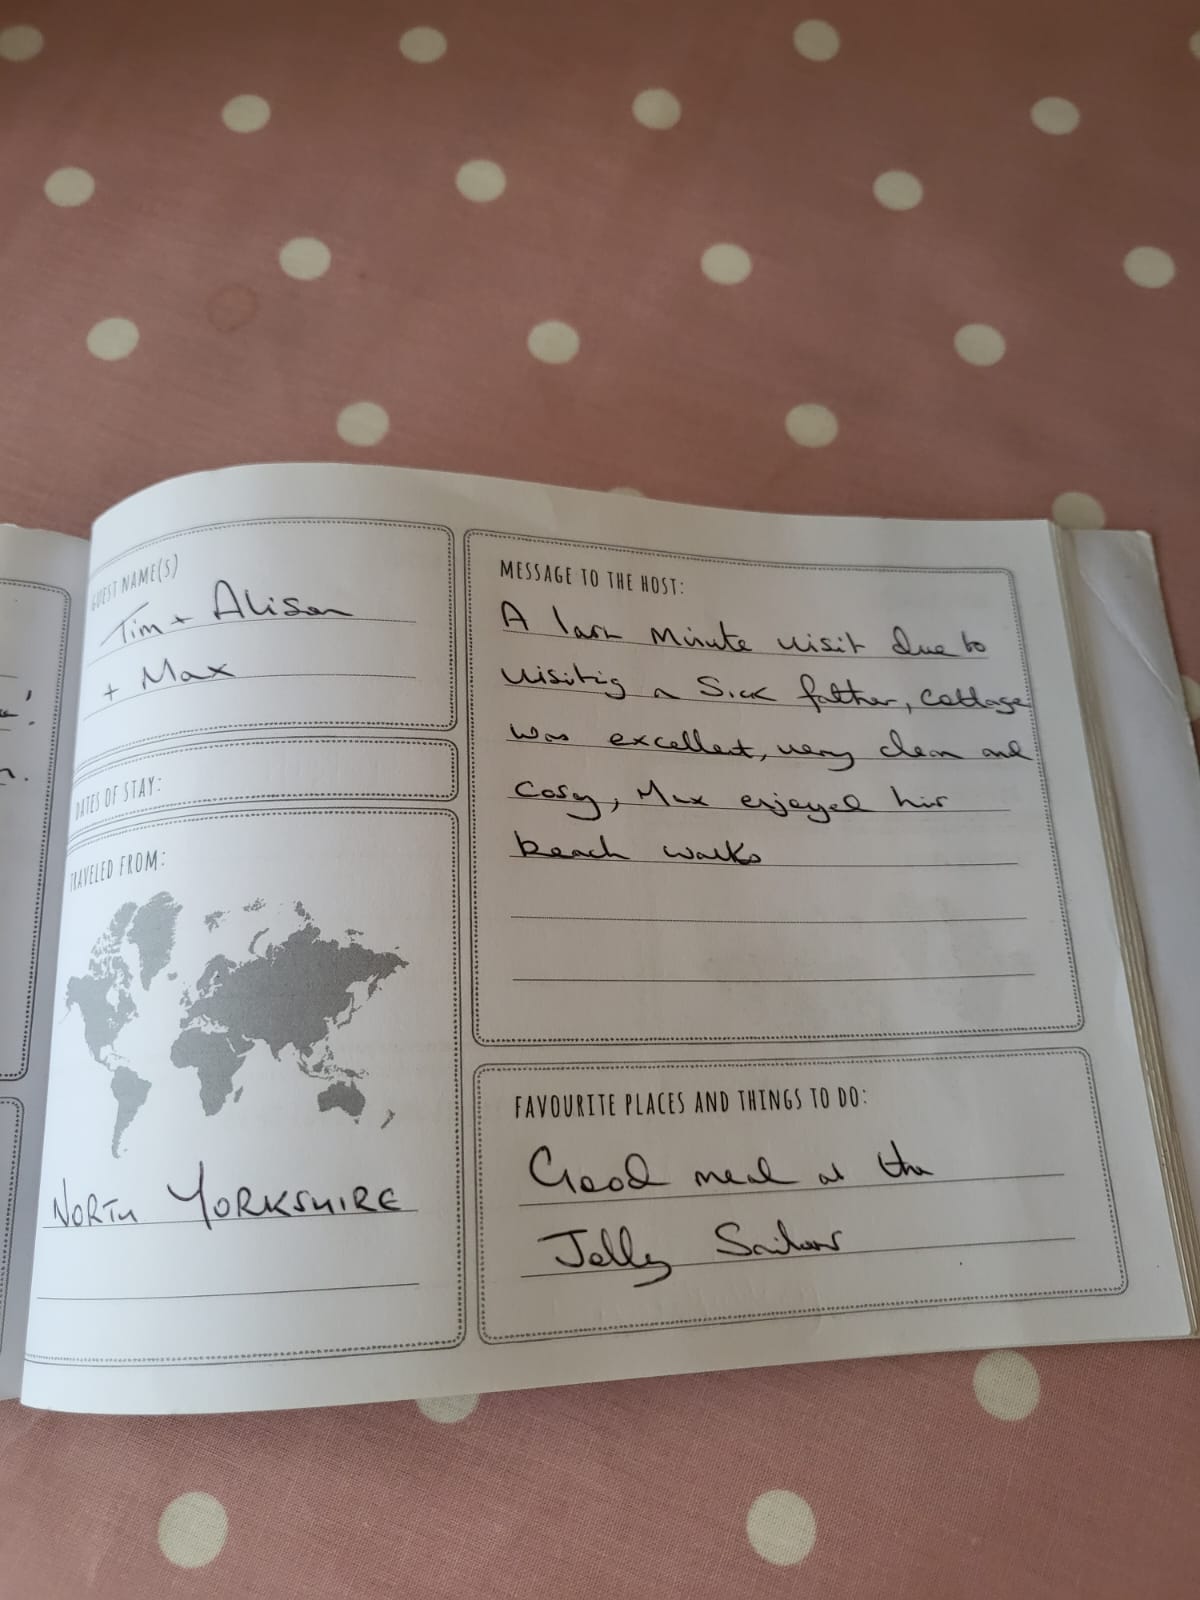 GUEST NAME(S)
Tim + Alison
+ Max
DATES OF STAY:
TRAVELED FROM:
NORTH YORKSHIRE
MESSAGE TO THE HOST:
A last minute visit due to
visiting a sick father, cottage
was excellent, very clean and
cosy, Max enjoyed his
beach walks
FAVOURITE PLACES AND THINGS TO DO:
Good meal at the
Jolly Sailors